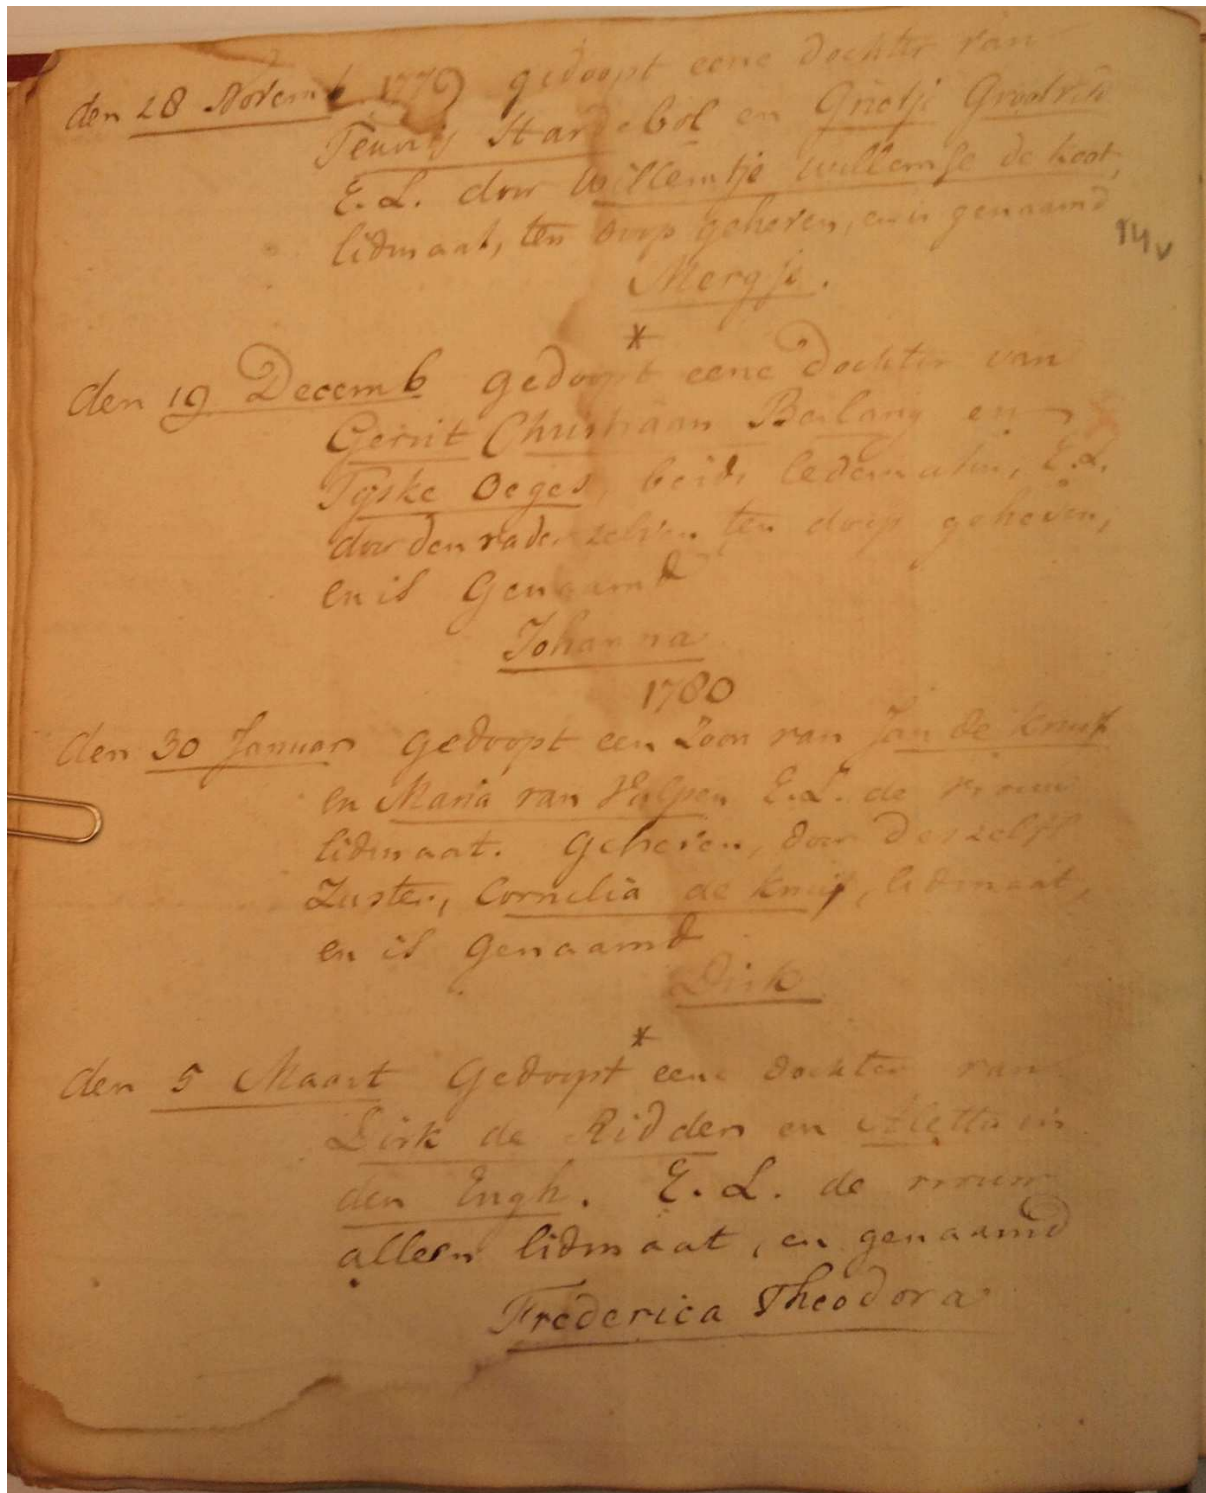 den 28 Novemb 1779 gedoopt eene dochter van
Teunis Hardebol en Grietje
E. L. door Willemtje Willemse de Koot,
lidmaat, ten doop geheven, en is genaamd
14v
Mergje.
*
den 19 Decemb gedoopt eene Dochter van
Gerrit Christiaan en
Tjske Oeges, beide ledematen, E. L.
door den vader zelven ten doop geheven,
en is Genaamd
Johanna
1780
den 30 Januar gedoopt een Zoon van Jan de Kruif
en Maria van E. L. de vrouw
lidmaat. Geheven, door deszelfs
Zuster, Cornelia de Kruif, lidmaat,
en is Genaamd
Dirk
*
den 5 Maart Gedoopt eene dochter van
Dirk de Ridder en Aletta in
den Engh. E. L. de vrouw
alleen lidmaat, en genaamd
Frederica Theodora